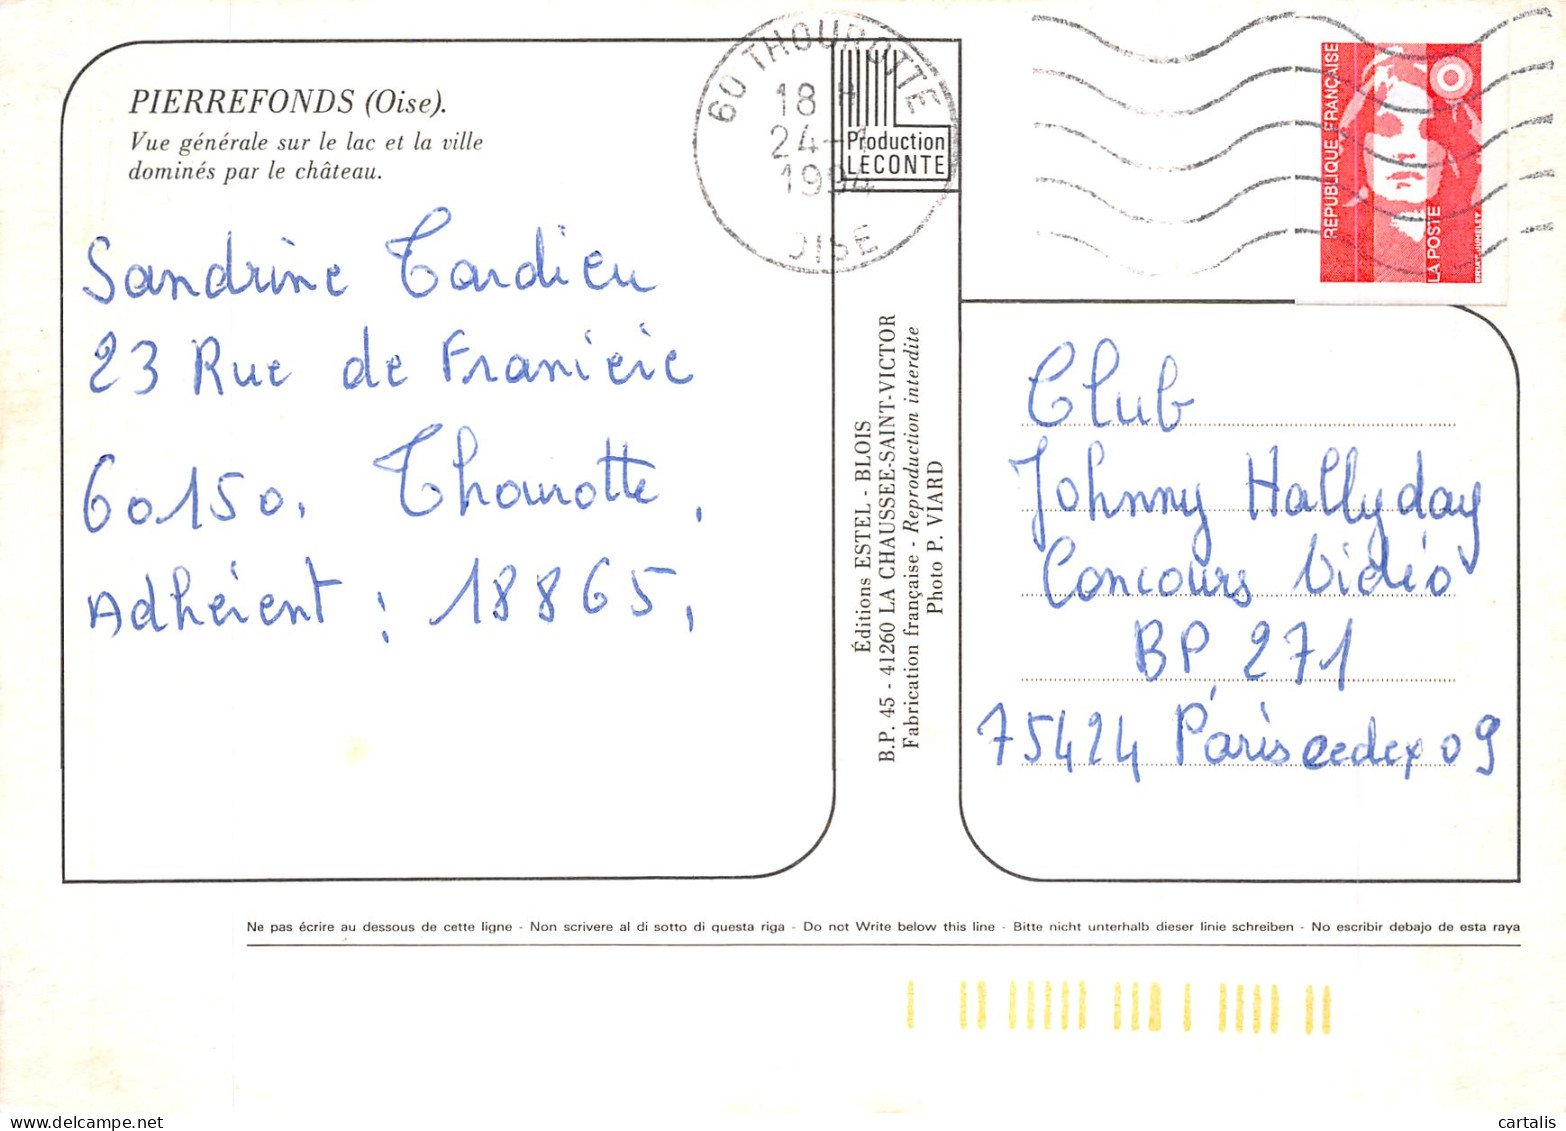 PIERREFONDS (Oise).
Vue générale sur le lac et la ville
dominés par le château.
Sandrine Tardieu
23 Rue de
60150. Thourotte.
Adhérent : 18865.
60 THOUROTTE
18 H
24-1
1994
OISE
Production
LECONTE
Éditions ESTEL - BLOIS
B.P. 45 - 41260 LA CHAUSSEE-SAINT-VICTOR
Fabrication française - Reproduction interdite
Photo P. VIARD
REPUBLIQUE FRANÇAISE
LA POSTE
Club
Johnny Hallyday
Concours Vidéo
BP. 271
75424 Paris cedex 09
Ne pas écrire au dessous de cette ligne - Non scrivere al di sotto di questa riga - Do not Write below this line - Bitte nicht unterhalb dieser linie schreiben - No escribir debajo de esta raya
cartalis